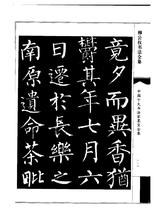 竟夕而異香猶
欝其年七月六
日遷於長樂之
南原遺命茶毗
柳公权书法全集